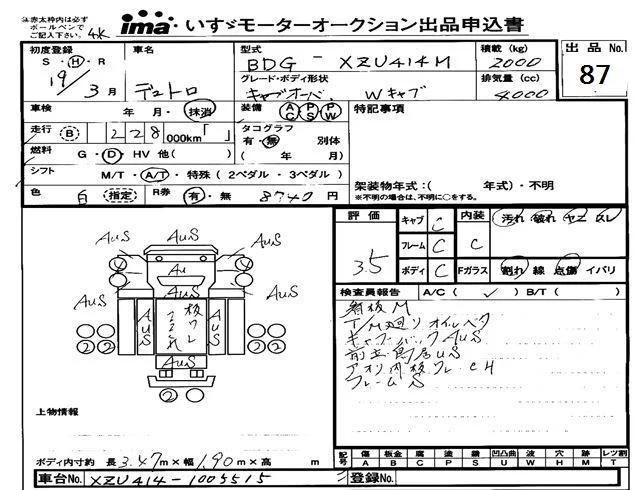 ima いすゞモーターオークション出品申込書
※赤太枠内は必ず
ボールペンで
ご記入下さい。
4K
初度登録 車名 型式 積載 (kg) 出品No.
S・H・R BDG - XZU414M 2000 87
19年3月 デュトロ グレード・ボディ形状 排気量 (cc)
キャブオーバ Wキャブ 4000
車検 年・月・抹消 装備 AC PS PW 特記事項
走行 B 228,000km「 」 タコグラフ
有・無 別体
燃料 G・D・HV 他( ) ( 年 月)
シフト M/T・A/T・特殊 (2ペダル・3ペダル) 架装物年式:( 年式)・不明
色 白 指定 R券 有・無 8740円 ※不明の場合は、不明に○をする。
評価 キャブ C 内装 汚れ 破れ ヤニ スレ
3.5 フレーム C C
ボディ C Fガラス 割れ 線 点傷 イバリ
検査員報告 A/C( ✓ ) B/T( )
看板M
T/M廻りオイルベタ
キャブバックAUS
前立鳥居US
アオリ内板ワレ CH
フレームS
AuS AuS
AuS
Au
AuS AuS
AuS 板ワレ AuS
AuS
② ② ② ②
② ②
上物情報
ボディ内寸以 長 3.47m×幅 1.90m×高 m
記号 傷A 板金B 腐C 塗P 錆S 凹凸曲U 波W 穴H 跡M レツ割T
車台No. XZU414-1005515 登録No.